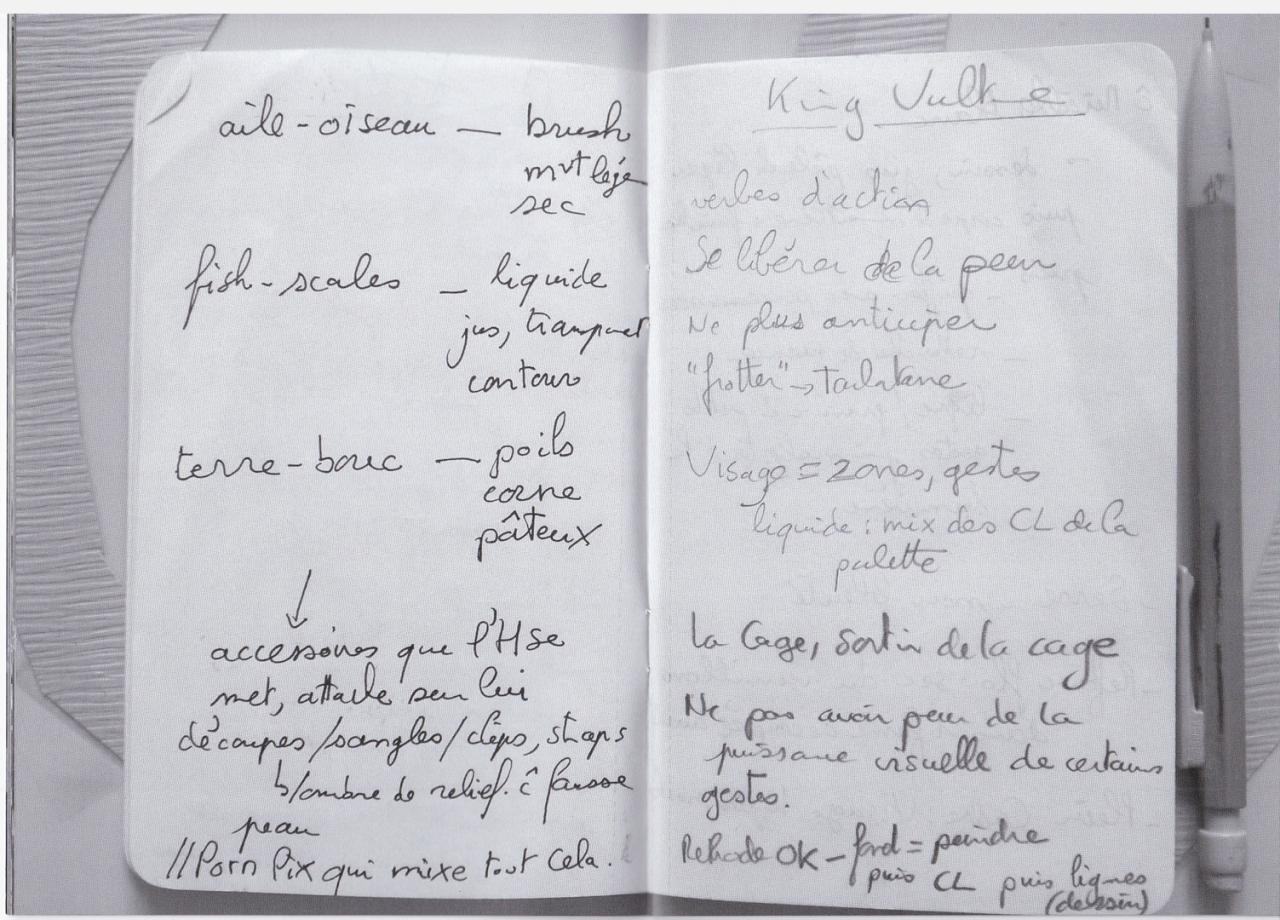 aile-oiseau — brush
mvt lége
sec
fish-scales — liquide
jus, transparet
contour
terre-bouc — poils
corne
pâteux
↓
accessoires que l'H se
met, attache sur lui
découpes/sangles/clips, straps
b/ombre de relief. ĉ fausse
peau
//Porn Pix qui mixe tout cela.
King Vulture
verbes d'action
Se libérer de la peur
Ne plus anticiper
"frotter" → tarlatane
Visage = zones, gestes
liquide : mix des CL de la
palette
la Cage, sortir de la cage
Ne pas avoir peur de la
puissance visuelle de certains
gestes.
OK – fond = peindre
puis CL puis lignes
(dessin)